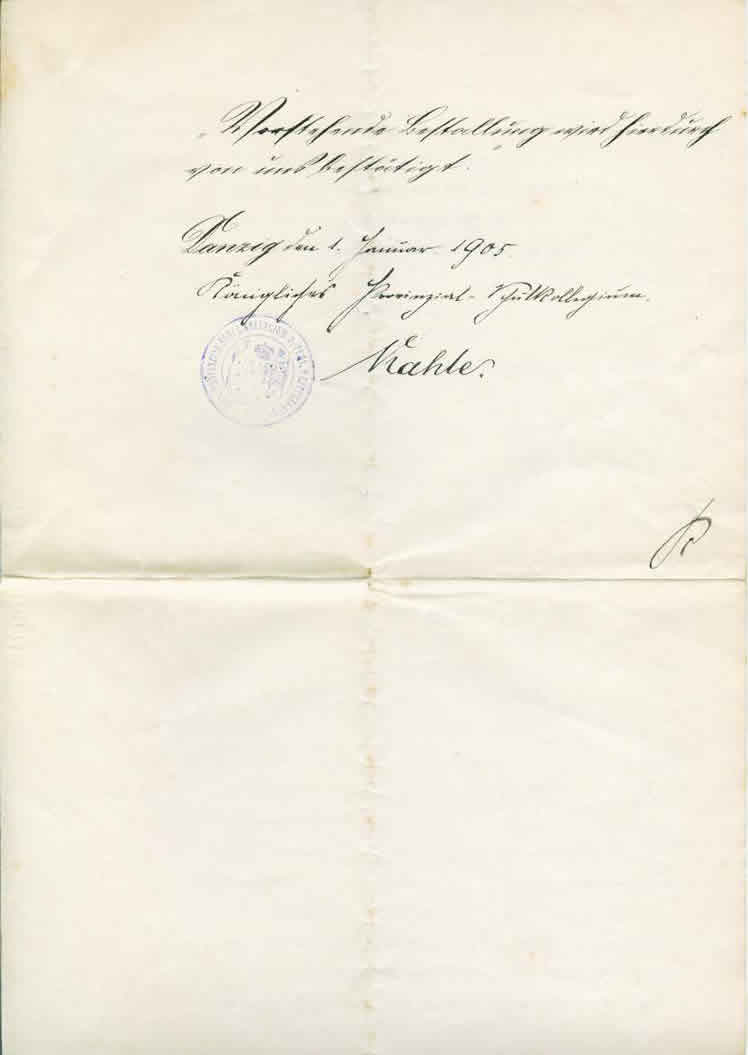 Vorstehende Bestallung wird hierdurch
von uns bestätigt.
Danzig den 1. Januar 1905.
Königliches Provinzial-Schulkollegium.
Kahle.